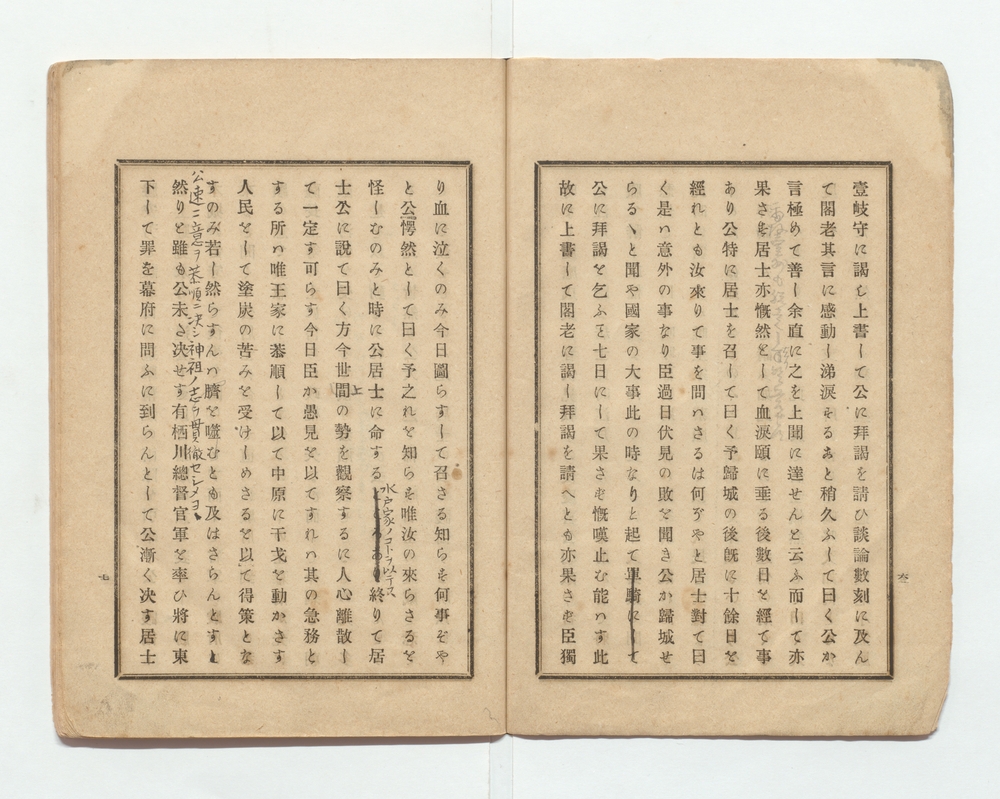 壹岐守に謁し上書して公に拜謁を請ひ談論數刻に及ん
て閣老其言に感動し涕淚するあと稍久ふして曰く公か
言極めて善し余直に之を上聞に達せんと云ふ而して亦
果さず居士亦慨然として血淚頤に垂る後數日を經て事
あり公特に居士を召して曰く予歸城の後旣に十餘日を
經れとも汝來りて事を問ハさるは何ぞやと居士對て曰
く是ハ意外の事なり臣過日伏見の敗を聞き公か歸城せ
らるゝと聞や國家の大事此の時なりと起て單騎にして
公に拜謁を乞ふと七日にして果さず慨嘆止む能ハす此
故に上書して閣老に謁し拜謁を請へとも亦果さず臣獨
六
り血に泣くのみ今日圖らすして召さる知らず何事ぞや
と公愕然として曰く予之れを知らず唯汝の來らさるを
怪しむのみと時に公居士に命する
水戸家ノコトヲ以テス
ところあり終りて居
士公に說て曰く方今世間の勢を觀察するに人心離散し
上
て一定す可らす今日臣か愚見を以てすれハ其の急務と
する所ハ唯王家に恭順して以て中原に干戈を動かさす
人民をして塗炭の苦みを受けしめさるを以て得策とな
すのみ若し然らすんハ臍を噬むとも及はさらんとすと
公速ニ意ヲ恭順ニ決シ神祖ノ志ヲ貫徹セシメヨト
然りと雖も公未た決せす有栖川總督官軍を率ひ將に東
下して罪を幕府に問ふに到らんとして公漸く決す居士
七